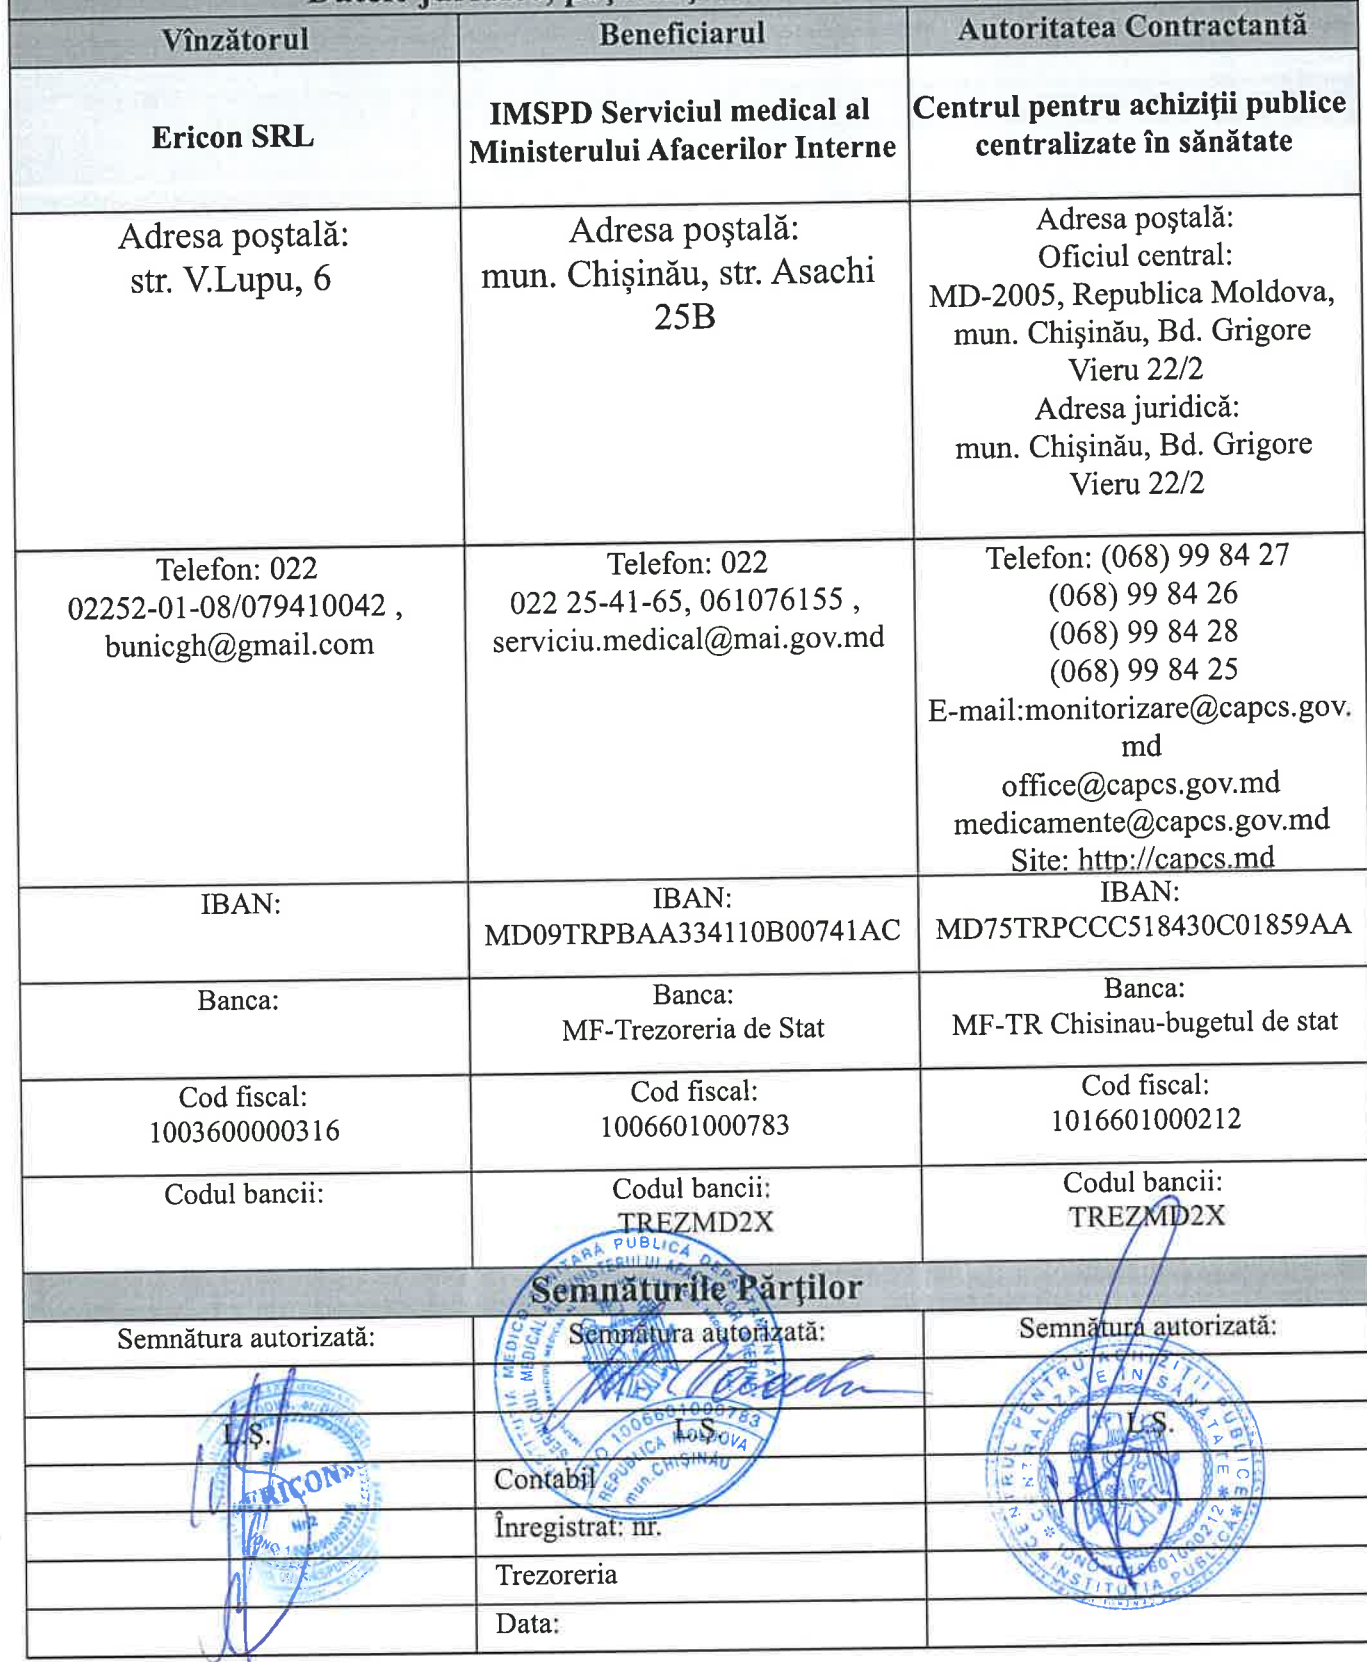 Vînzătorul
Beneficiarul
Autoritatea Contractantă
Ericon SRL
IMSPD Serviciul medical al
Ministerului Afacerilor Interne
Centrul pentru achiziţii publice
centralizate în sănătate
Adresa poştală:
str. V.Lupu, 6
Adresa poştală:
mun. Chișinău, str. Asachi
25B
Adresa poştală:
Oficiul central:
MD-2005, Republica Moldova,
mun. Chişinău, Bd. Grigore
Vieru 22/2
Adresa juridică:
mun. Chişinău, Bd. Grigore
Vieru 22/2
Telefon: 022
02252-01-08/079410042 ,
bunicgh@gmail.com
Telefon: 022
022 25-41-65, 061076155 ,
serviciu.medical@mai.gov.md
Telefon: (068) 99 84 27
(068) 99 84 26
(068) 99 84 28
(068) 99 84 25
E-mail:monitorizare@capcs.gov.
md
office@capcs.gov.md
medicamente@capcs.gov.md
Site: http://capcs.md
IBAN:
IBAN:
MD09TRPBAA334110B00741AC
IBAN:
MD75TRPCCC518430C01859AA
Banca:
Banca:
MF-Trezoreria de Stat
Banca:
MF-TR Chisinau-bugetul de stat
Cod fiscal:
1003600000316
Cod fiscal:
1006601000783
Cod fiscal:
1016601000212
Codul bancii:
Codul bancii:
TREZMD2X
Codul bancii:
TREZMD2X
Semnăturile Părţilor
Semnătura autorizată:
Semnătura autorizată:
Semnătura autorizată:
L.Ș.
L.Ș.
L.Ș.
Contabil
Înregistrat: nr.
Trezoreria
Data:
SRL
RICON»
Nr.2
1006601000783
REPUBLICA MOLDOVA
mun. CHIŞINĂU
CENTRUL PENTRU ACHIZIŢII PUBLICE
CENTRALIZATE ÎN SĂNĂTATE
IDNO 1016601000212
INSTITUŢIA PUBLICĂ